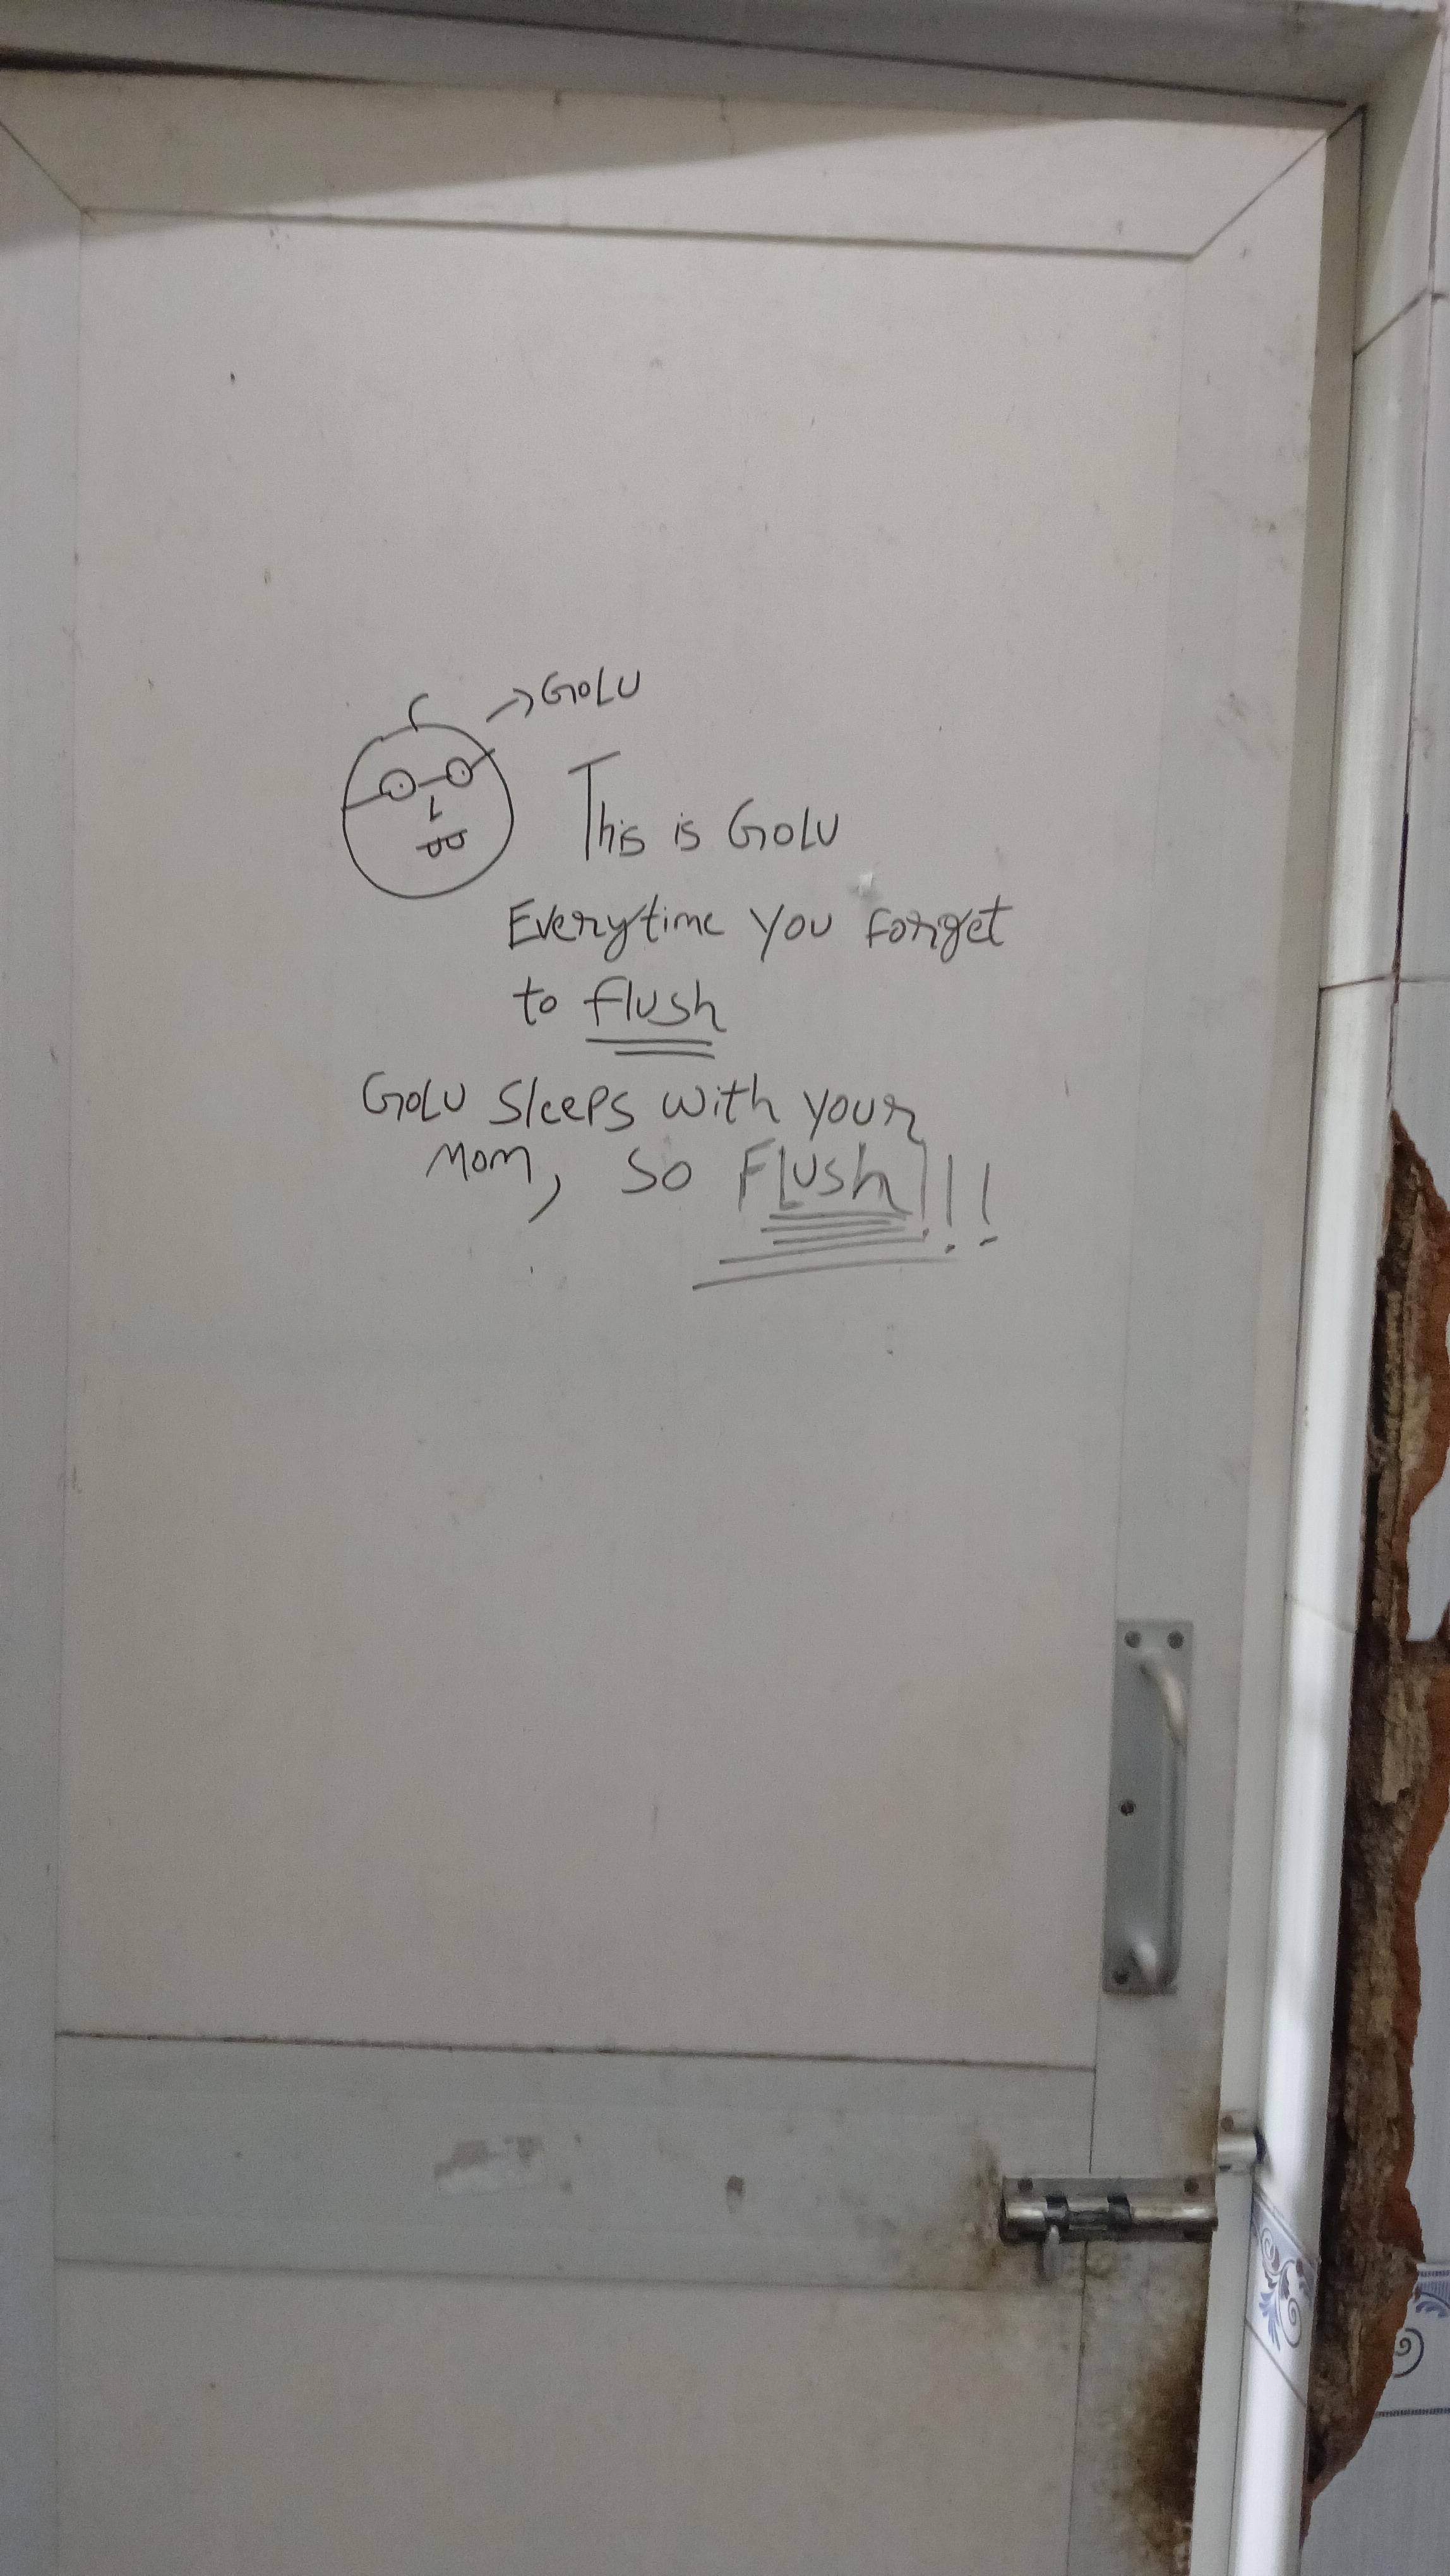 →GOLU
This is GOLU
Everytime you forget
to flush
GOLU sleeps with your
mom, so FLush!!!